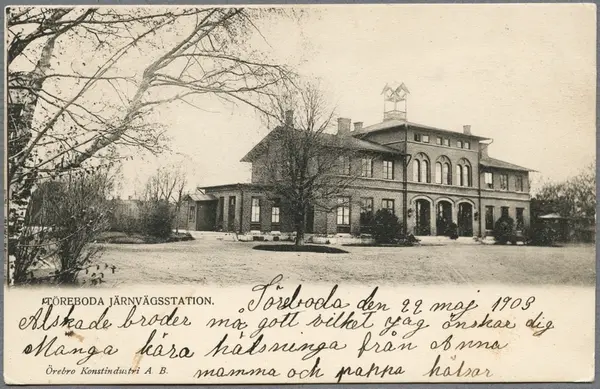 TÖREBODA JÄRNVÄGSSTATION.
Töreboda den 22 maj 1903
Älskade broder må gott vilket jag önskar dig
Manga kära hälsninga från Anna
Örebro Konstindustri A. B.
mamma och pappa hälsar